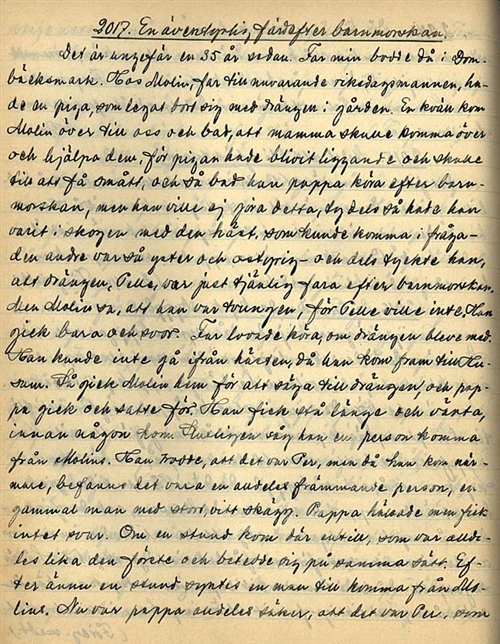 2017. En äventyrlig färd efter barnmorskan.
Det är ungefär en 35 år sedan. Far min bodde då i Dom-
bäcksmark. Hos Molin, far till nuvarande riksdagsmannen, ha-
de en piga, som legat bort sig med drängen i gården. En kväll kom
Molin över till oss och bad, att mamma skulle komma över
och hjälpa dem, för pigan hade blivit liggande och skulle
till att få smått, och så bad han pappa köra efter barn-
morskan, men han ville ej göra detta, ty dels så hade han
varit i skogen med den häst, som kunde komma i fråga -
den andre var så yster och ostyrig - och dels tyckte han,
att drängen, Pelle, var just tjänlig fara efter barnmorskan.
Men Molin sa, att han var tvungen, för Pelle ville inte. Han
gick bara och svor. Far lovade köra, om drängen bleve med.
Han kunde inte gå ifrån hästen, då han kom fram till Hu-
sum. Så gick Molin hem för att säga till drängen, och pap-
pa gick och satte för. Han fick stå länge och vänta,
innan någon kom. Slutligen såg han en person komma
från Molins. Han trodde, att det var Per, men då han kom när-
mare, befanns det vara en audeles främmande person, en
gammal man med stort, vitt skägg. Pappa hälsade men fick
intet svar. Om en stund kom där en till, som var allde-
les lika den förste och betedde sig på samma sätt. Ef-
ter ännu en stund syntes en man till komma från Mo-
lins. Nu var pappa audeles säker, att det var Per, som